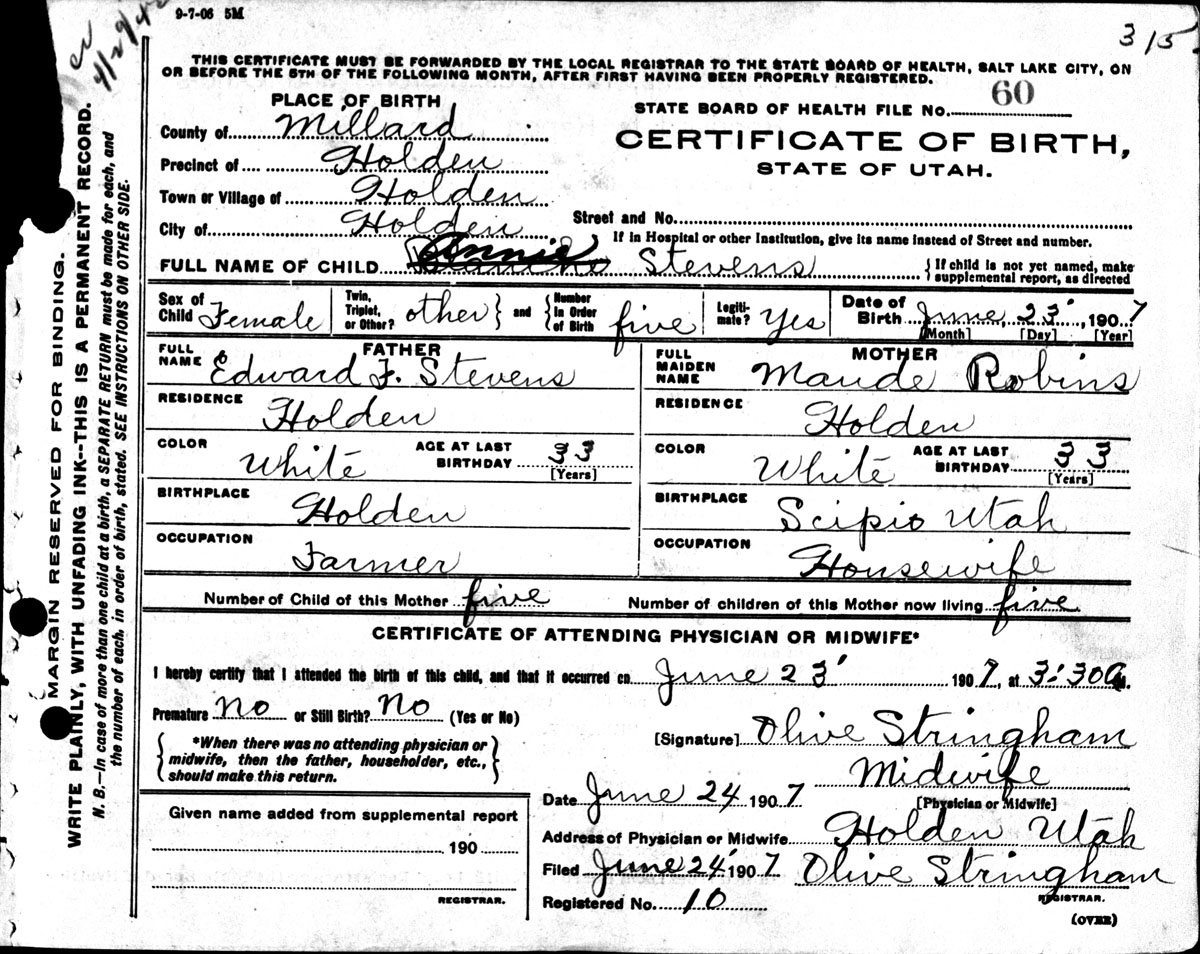 9-7-06 5M
3 15
4/29/42
THIS CERTIFICATE MUST BE FORWARDED BY THE LOCAL REGISTRAR TO THE STATE BOARD OF HEALTH, SALT LAKE CITY, ON
OR BEFORE THE 5TH OF THE FOLLOWING MONTH, AFTER FIRST HAVING BEEN PROPERLY REGISTERED.
PLACE OF BIRTH
STATE BOARD OF HEALTH FILE No. 60
County of Millard
CERTIFICATE OF BIRTH,
Precinct of Holden
STATE OF UTAH.
Town or Village of Holden
City of Holden
Street and No.
If in Hospital or other Institution, give its name instead of Street and number.
FULL NAME OF CHILD Annie Stevens
{If child is not yet named, make
supplemental report, as directed
Sex of Child Female
Twin, Triplet, or Other? other } and { Number in Order of Birth five
Legitimate? Yes
Date of Birth June, 23, 1907
[Month] [Day] [Year]
FATHER
FULL NAME Edward F. Stevens
MOTHER
FULL MAIDEN NAME Maude Robins
RESIDENCE Holden
RESIDENCE Holden
COLOR White AGE AT LAST BIRTHDAY 33 [Years]
COLOR White AGE AT LAST BIRTHDAY 33 [Years]
BIRTHPLACE Holden
BIRTHPLACE Scipio Utah
OCCUPATION Farmer
OCCUPATION Housewife
Number of Child of this Mother five Number of children of this Mother now living five
CERTIFICATE OF ATTENDING PHYSICIAN OR MIDWIFE*
I hereby certify that I attended the birth of this child, and that it occurred on June 23 1907, at 3:30 a.m.
Premature No or Still Birth? No (Yes or No)
{*When there was no attending physician or
midwife, then the father, householder, etc.,
should make this return.}
[Signature] Olive Stringham
Midwife
[Physician or Midwife]
Date June 24 1907
Address of Physician or Midwife Holden Utah
Filed June 24 1907 Olive Stringham
REGISTRAR.
Registered No. 10
(OVER)
Given name added from supplemental report
190
REGISTRAR.
MARGIN RESERVED FOR BINDING.
WRITE PLAINLY, WITH UNFADING INK--THIS IS A PERMANENT RECORD.
N. B.—In case of more than one child at a birth, a SEPARATE RETURN must be made for each, and
the number of each, in order of birth, stated. SEE INSTRUCTIONS ON OTHER SIDE.